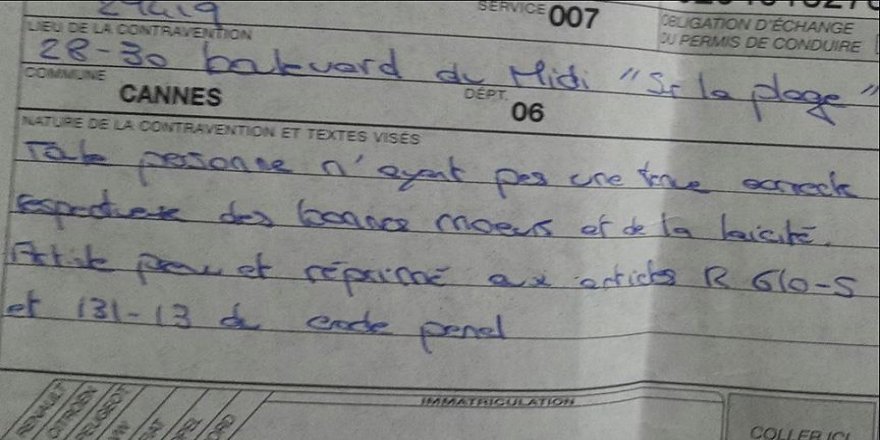 29419
SERVICE 007
OBLIGATION D'ÉCHANGE
DU PERMIS DE CONDUIRE
LIEU DE LA CONTRAVENTION
28-30 boulevard du Midi "Sr la plage"
COMMUNE
CANNES
DÉPT.
06
NATURE DE LA CONTRAVENTION ET TEXTES VISÉS
Toute personne n'ayant pas une tenue correcte
respectueuse des bonnes moeurs et de la laicité.
Article prevu et réprimé aux articles R 610-5
et 131-13 du code penal
IMMATRICULATION
RENAULT
CITROËN
PEUGEOT
COLLER ICI